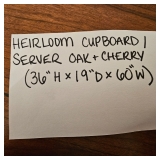 HEIRLOOM CUPBOARD /
SERVER OAK + CHERRY
(36"H × 19"D × 60"W)